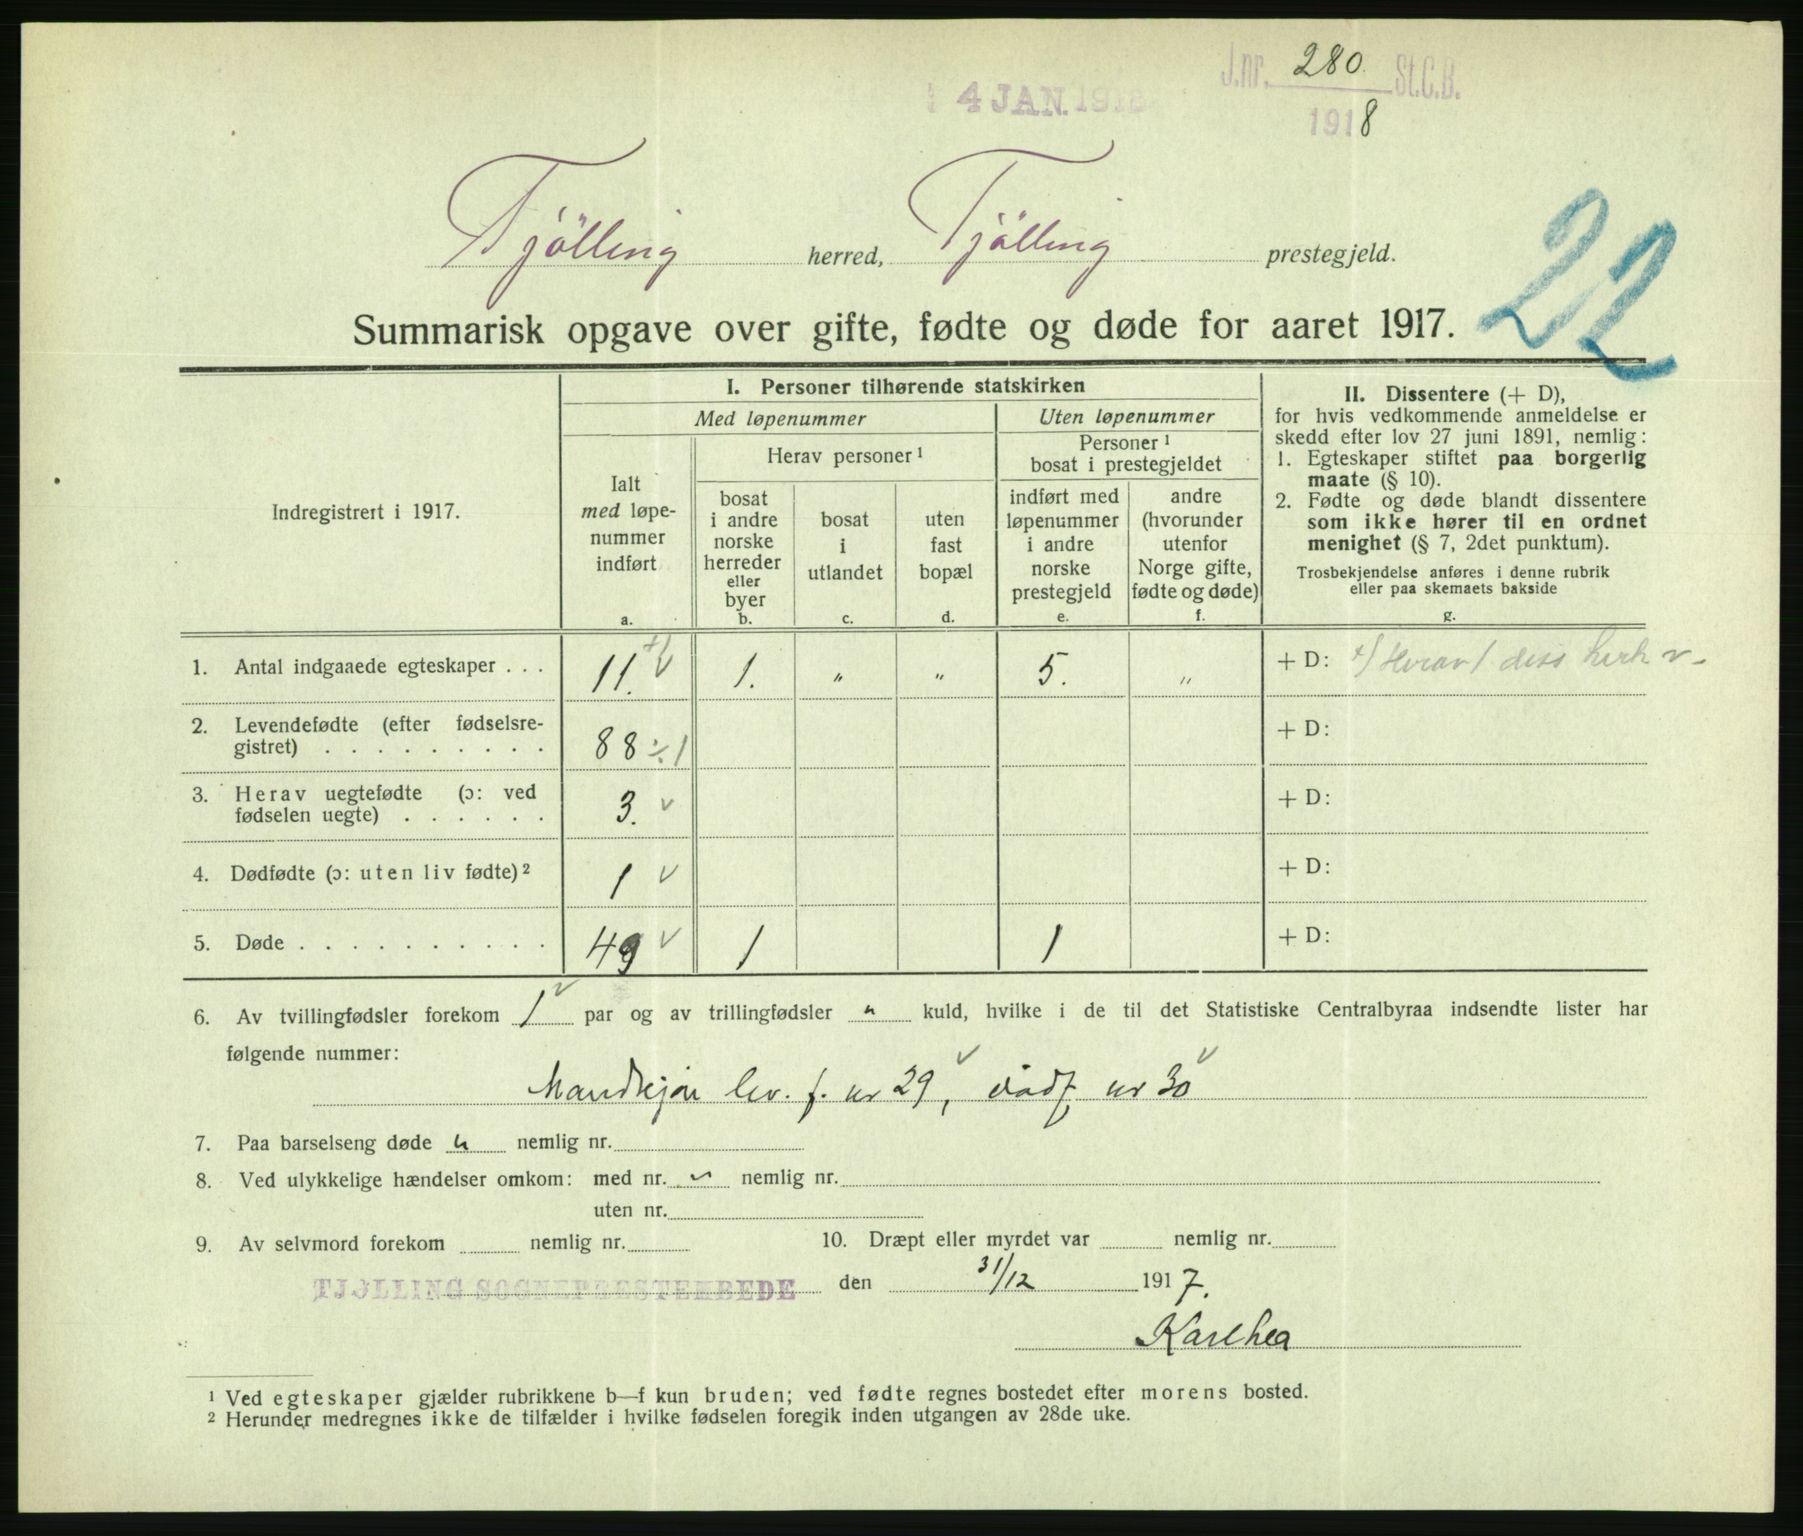 J.nr. 280 St.C.B.
4 JAN. 1918
1918
Tjölling herred, Tjölling prestegjeld.
22
Summarisk opgave over gifte, fødte og døde for aaret 1917.
Indregistrert i 1917.
I. Personer tilhørende statskirken
Med løpenummer
Uten løpenummer
Ialt
med løpe-
nummer
indført
a.
Herav personer ¹
bosat
i andre
norske
herreder
eller
byer
b.
bosat
i
utlandet
c.
uten
fast
bopæl
d.
Personer ¹
bosat i prestegjeldet
indført med
løpenummer
i andre
norske
prestegjeld
e.
andre
(hvorunder
utenfor
Norge gifte,
fødte og døde)
f.
II. Dissentere (+ D),
for hvis vedkommende anmeldelse er
skedd efter lov 27 juni 1891, nemlig:
1. Egteskaper stiftet paa borgerlig
maate (§ 10).
2. Fødte og døde blandt dissentere
som ikke hører til en ordnet
menighet (§ 7, 2det punktum).
Trosbekjendelse anføres i denne rubrik
eller paa skemaets bakside
g.
1. Antal indgaaede egteskaper . . . 11. v 1. " " 5. " + D: Herav 1 diss kirk v
2. Levendefødte (efter fødselsre-
gistret) . . . . . . . . . 88 ÷1 + D:
3. Herav uegtefødte (ɔ: ved
fødselen uegte) . . . . . . 3. v + D:
4. Dødfødte (ɔ: uten liv fødte) ² 1 v + D:
5. Døde . . . . . . . . . . 49 v 1 1 + D:
6. Av tvillingfødsler forekom 1 v par og av trillingfødsler " kuld, hvilke i de til det Statistiske Centralbyraa indsendte lister har
følgende nummer:
Mandkjøn lev. f. nr 29 v, dödf. nr 30 v
7. Paa barselseng døde " nemlig nr.
8. Ved ulykkelige hændelser omkom: med nr. " nemlig nr.
uten nr.
9. Av selvmord forekom nemlig nr. 10. Dræpt eller myrdet var nemlig nr.
TJØLLING SOGNEPRESTEMBEDE den 31/12 1917.
¹ Ved egteskaper gjælder rubrikkene b—f kun bruden; ved fødte regnes bostedet efter morens bosted.
² Herunder medregnes ikke de tilfælder i hvilke fødselen foregik inden utgangen av 28de uke.